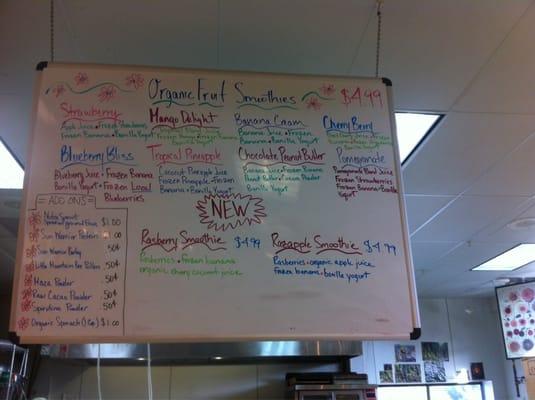 Organic Fruit Smoothies $4.99
Strawberry
Apple Juice • Frozen Strawberry
Frozen Banana • Vanilla Yogurt
Mango Delight
Frozen Mango • Frozen Banana
Vanilla Yogurt
Banana Cream
Banana Juice • Frozen
Banana • Vanilla Yogurt
Cherry Berry
Blueberry Bliss
Blueberry Juice • Frozen
Banana • Vanilla
Yogurt • Frozen Local
Blueberries
Tropical Pineapple
Coconut Pineapple Juice
Frozen Pineapple • Frozen
Banana • Vanilla Yogurt
Chocolate Peanut Butter
Banana Juice • Frozen Banana
Peanut Butter • Cacao Powder
Vanilla Yogurt
Pomegranate
Pomegranate Blend Juice
Frozen Strawberries
Frozen Banana • Vanilla
Yogurt
NEW
= ADD ONS =
$1.00
Sun Warrior Protein $1.00
Sun Warrior Barley .50¢
Little Mountain Bee Pollen .50¢
Maca Powder .50¢
Raw Cacao Powder .50¢
Spirulina Powder .50¢
Organic Spinach (1 Cup) $1.00
Rasberry Smoothie $4.99
Rasberries • frozen banana
organic cherry coconut juice
Raspapple Smoothie $4.99
Rasberries • organic apple juice
frozen banana • vanilla yogurt